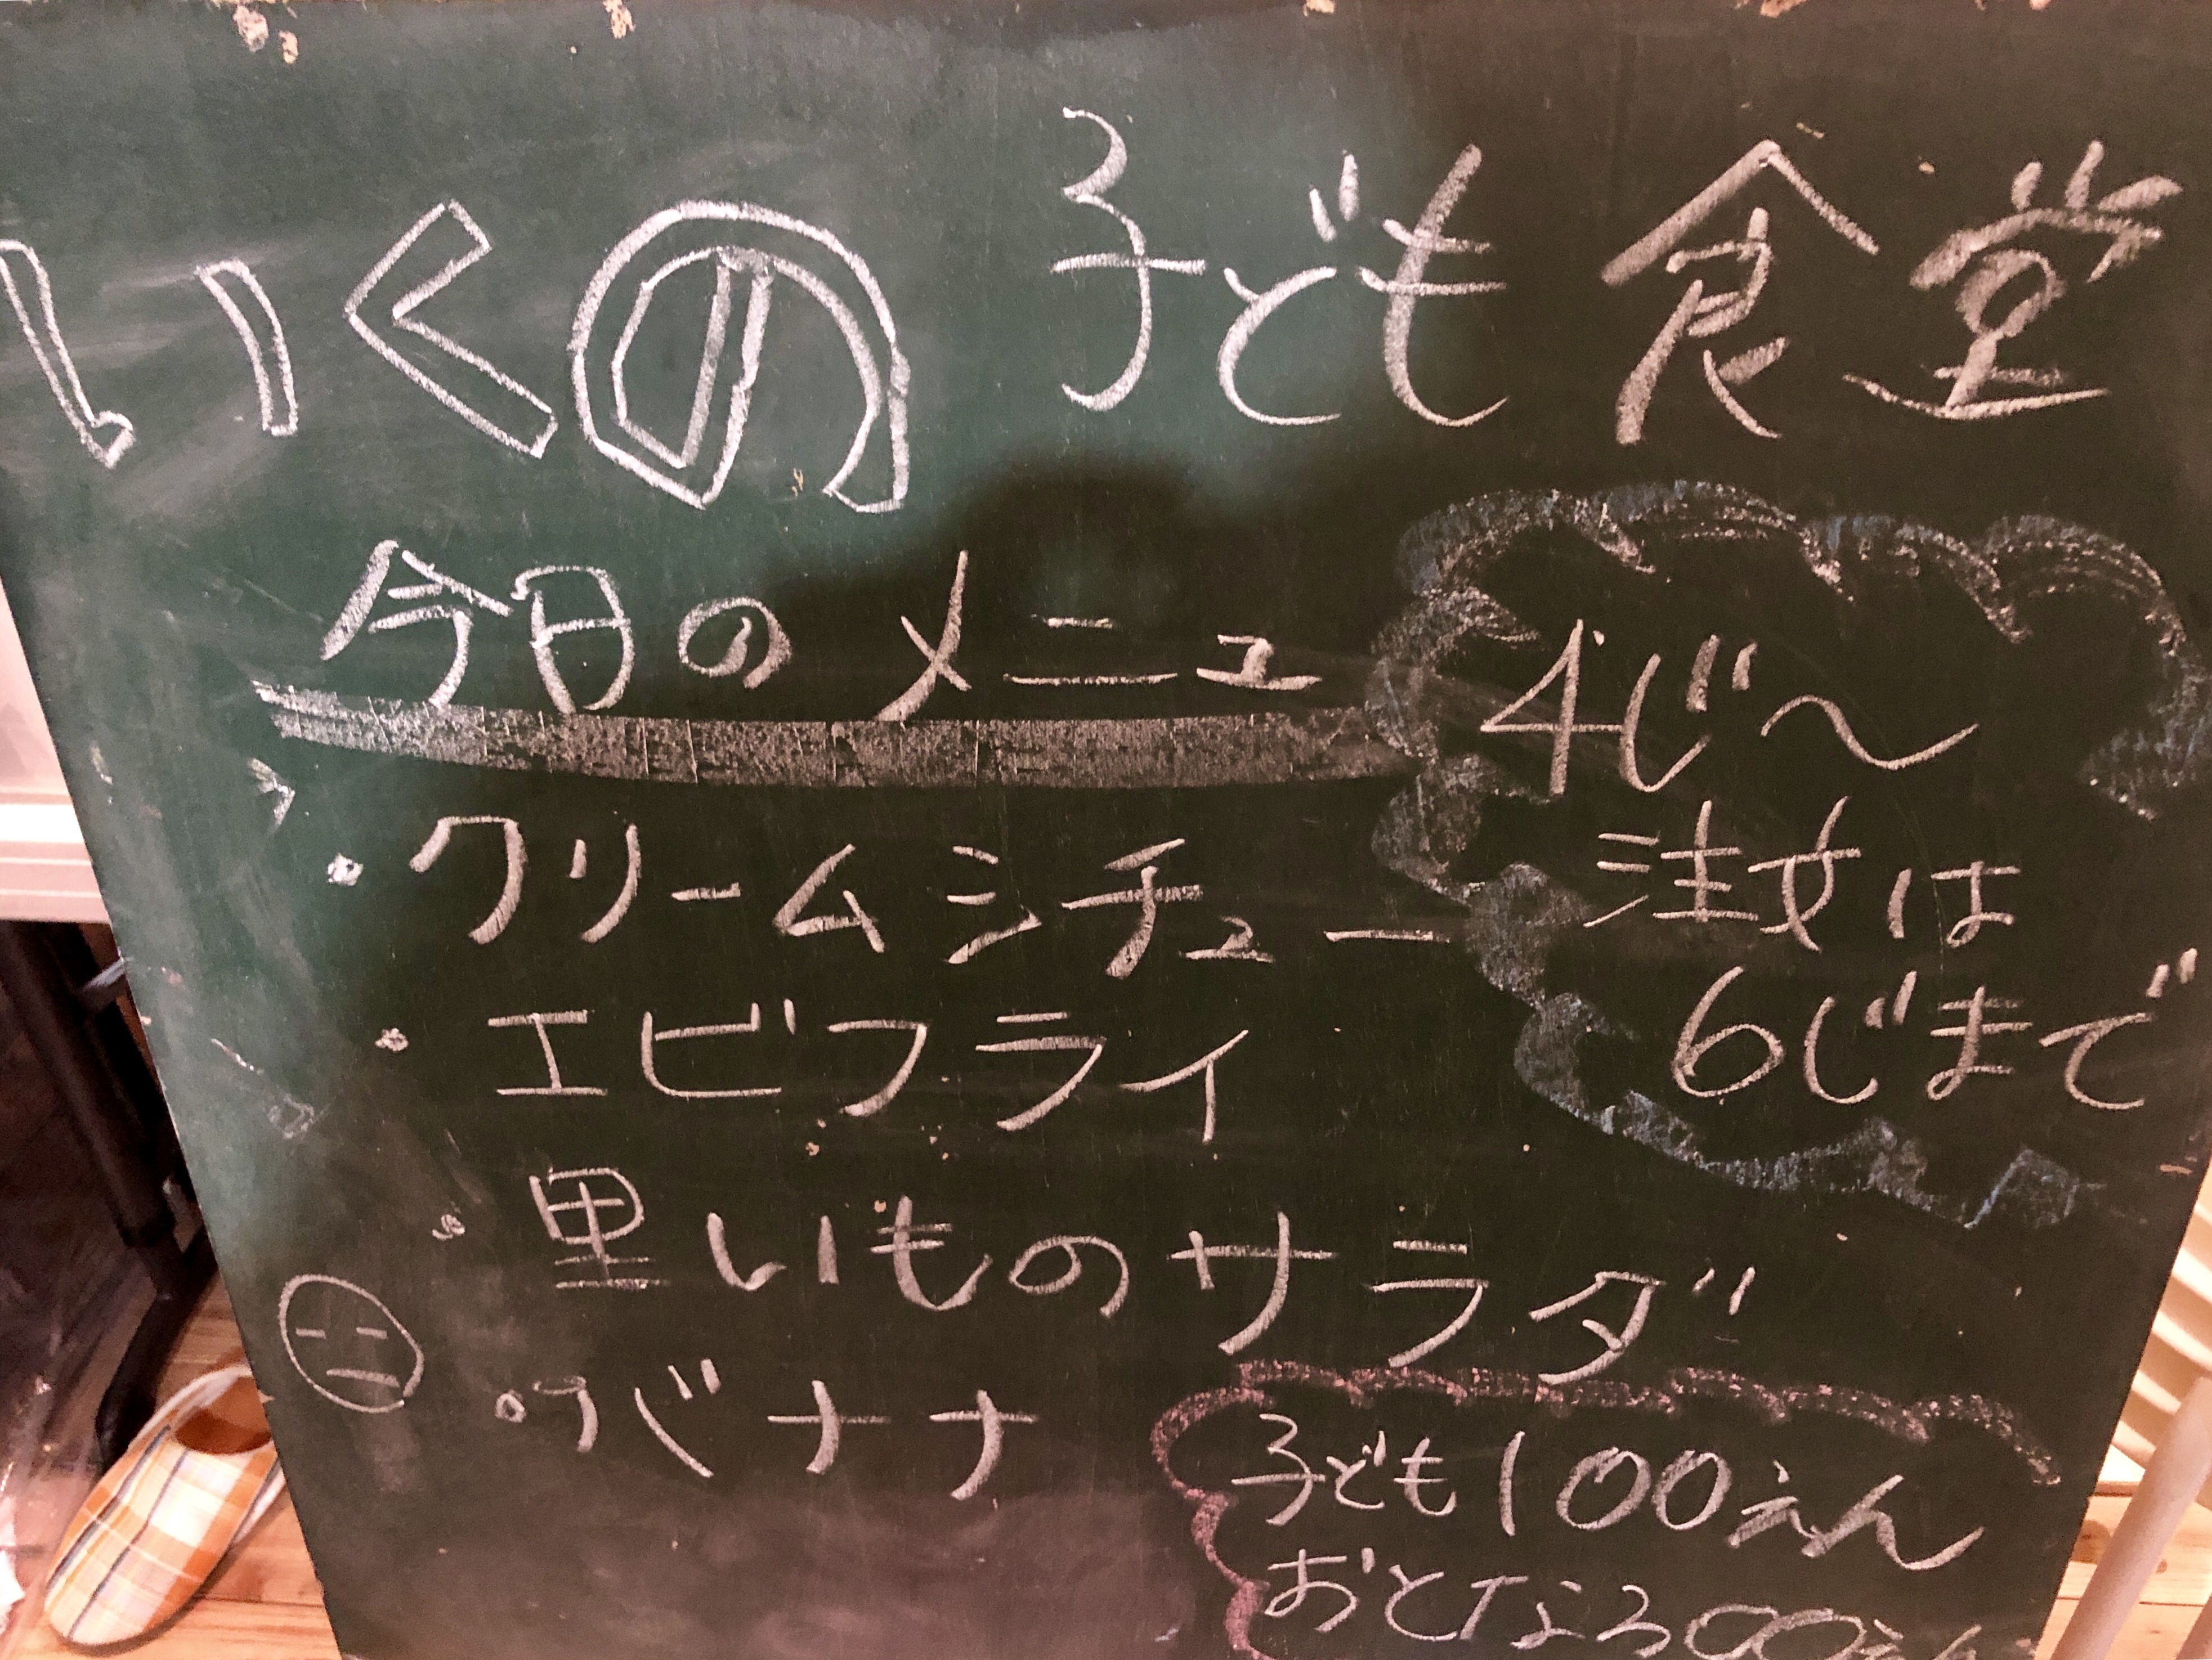 いくの 子ども食堂
今日のメニュ
4じ〜
注文は
6じまで
・クリームシチュー
・エビフライ
・里いものサラダ
・バナナ
子ども100えん
おとな300えん